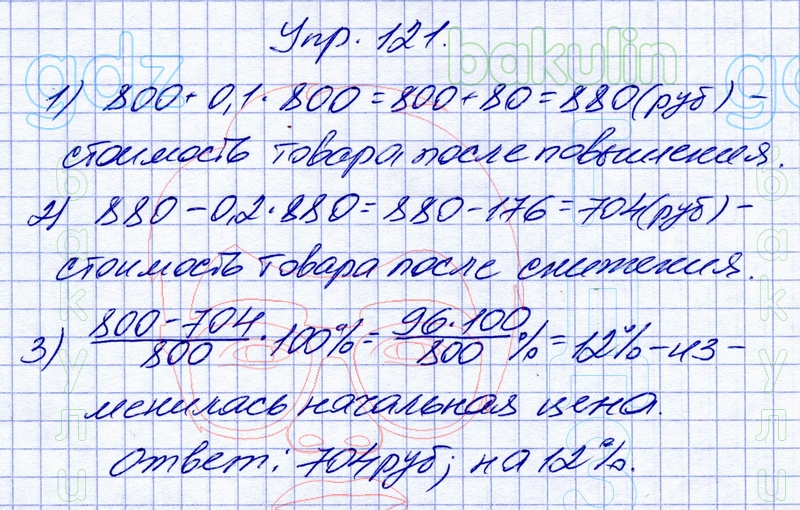 Упр. 121.
1) 800 + 0,1 · 800 = 800 + 80 = 880 (руб) –
стоимость товара после повышения.
2) 880 – 0,2 · 880 = 880 – 176 = 704 (руб) –
стоимость товара после снижения.
3) (800 – 704)/800 · 100% = (96 · 100)/800 % = 12% – из-
менилась начальная цена.
Ответ: 704 руб; на 12%.
gdz
bakulin